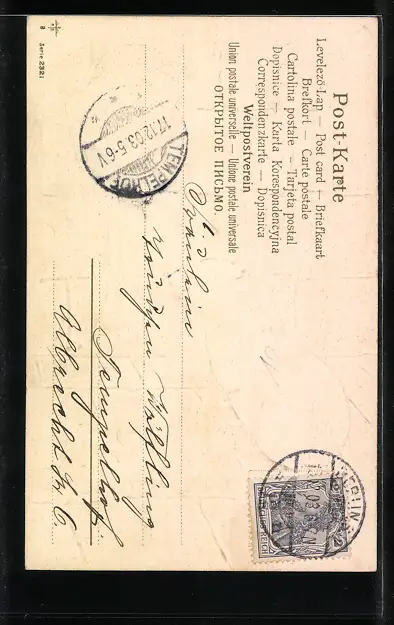 Post-Karte
Levelező-Lap — Post card — Briefkaart
Brefkort — Carte postale
Cartolina postale — Tarjeta postal
Dopisnice — Karta Korespondencyjna
Correspondenzkarte — Dopisnica
Weltpostverein
Union postale universelle — Unione postale universale
ОТКРЫТОЕ ПИСЬМО.
BERLIN
REICH
2
TEMPELHOF
17.12.03.5-6V
Fräulein
Tempelhof
Albrecht Str 6
Serie 2321